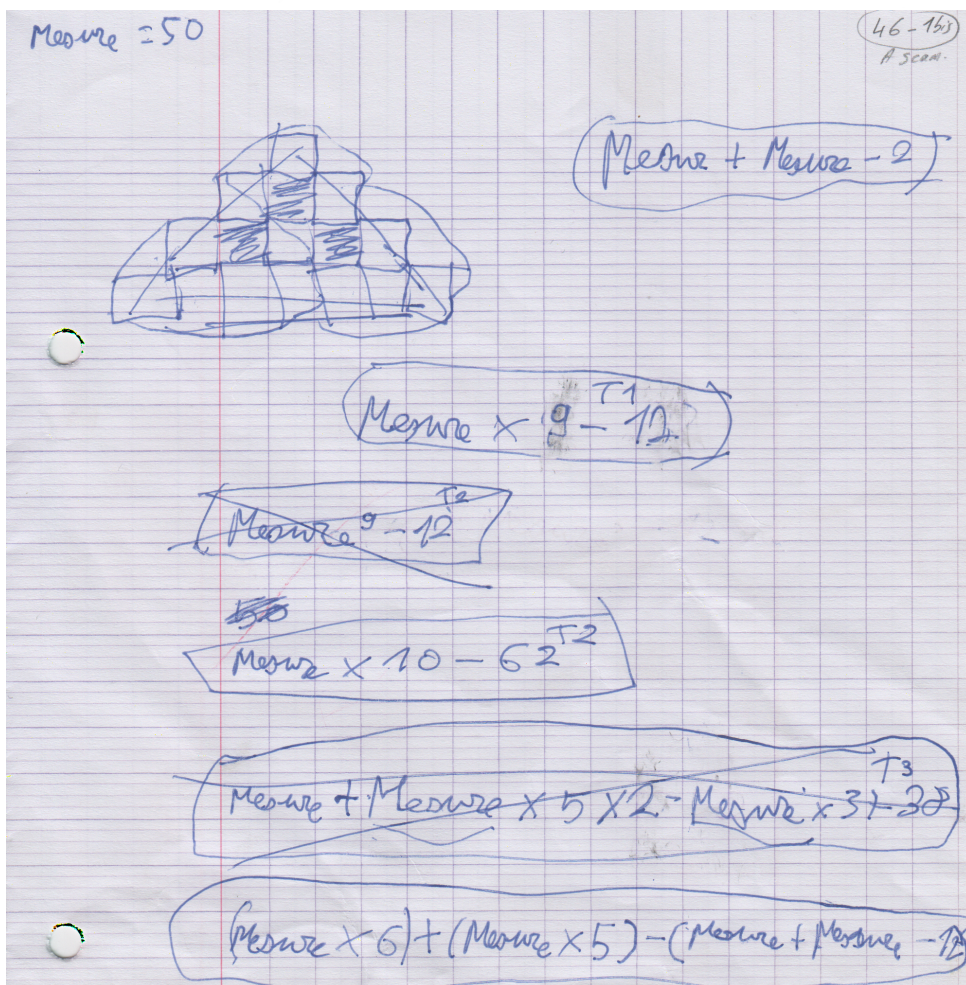 Mesure = 50
46-1bis
A scan.
Mesure + Mesure - 2
Mesure × 9 - 12 T1
Mesure 9 - 12 T2
50
Mesure × 10 - 62 T2
Mesure + Mesure × 5 × 2 - Mesure × 3) - 38 T3
(Mesure × 6) + (Mesure × 5) - (Mesure + Mesure - 12